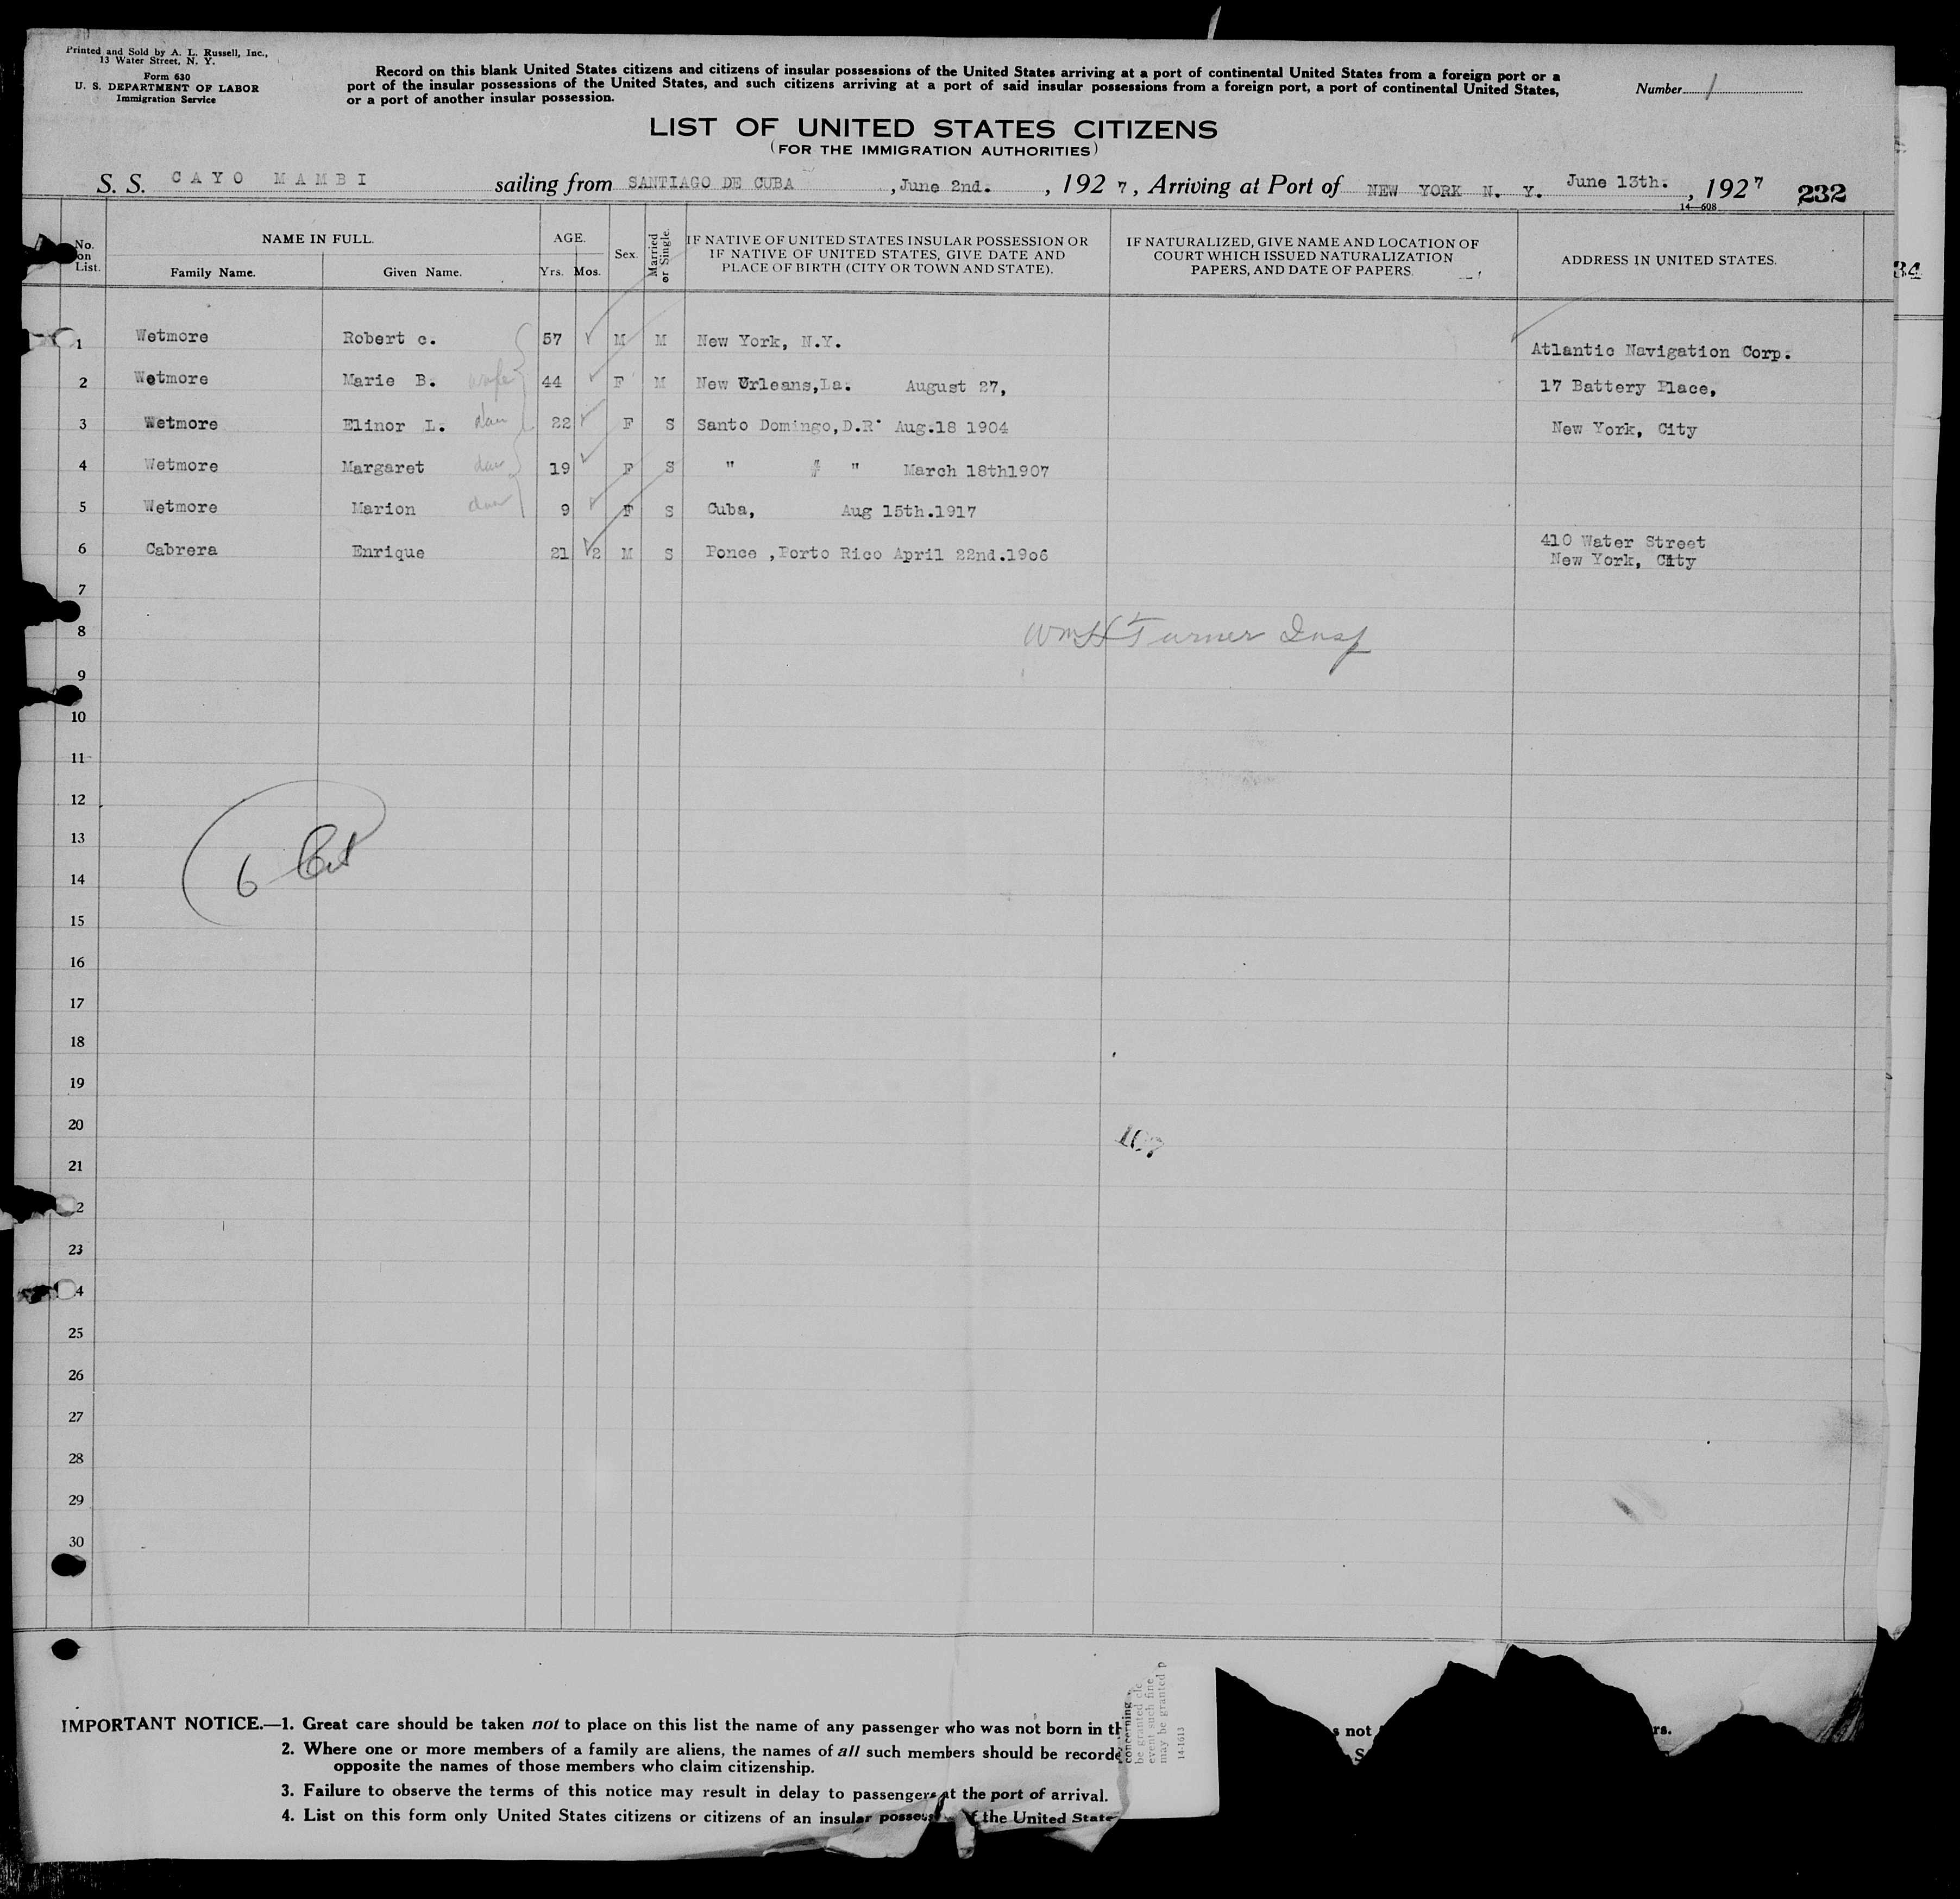 Printed and Sold by A. L. Russell, Inc.,
13 Water Street, N. Y.
Form 630
U. S. DEPARTMENT OF LABOR
Immigration Service
Record on this blank United States citizens and citizens of insular possessions of the United States arriving at a port of continental United States from a foreign port or a
port of the insular possessions of the United States, and such citizens arriving at a port of said insular possessions from a foreign port, a port of continental United States,
or a port of another insular possession.
Number 1
LIST OF UNITED STATES CITIZENS
(FOR THE IMMIGRATION AUTHORITIES)
S. S. CAYO MAMBI sailing from SANTIAGO DE CUBA, June 2nd., 1927, Arriving at Port of NEW YORK N. Y. June 13th., 1927 232
14—608
34
No. on List. NAME IN FULL. Family Name. Given Name. AGE. Yrs. Mos. Sex. Married or Single. IF NATIVE OF UNITED STATES INSULAR POSSESSION OR IF NATIVE OF UNITED STATES, GIVE DATE AND PLACE OF BIRTH (CITY OR TOWN AND STATE). IF NATURALIZED, GIVE NAME AND LOCATION OF COURT WHICH ISSUED NATURALIZATION PAPERS, AND DATE OF PAPERS. ADDRESS IN UNITED STATES.
1 Wetmore Robert c. 57 M M New York, N.Y. Atlantic Navigation Corp.
2 Wetmore Marie B. wife 44 F M New Orleans,La. August 27, 17 Battery Place,
3 Wetmore Elinor L. dau 22 F S Santo Domingo,D.R. Aug.18 1904 New York, City
4 Wetmore Margaret dau 19 F S " " " March 18th1907
5 Wetmore Marion dau 9 F S Cuba, Aug 15th.1917
6 Cabrera Enrique 21 2 M S Ponce ,Porto Rico April 22nd.19o6 410 Water Street
New York, City
7
8 Wm H Turner Insp
9
10
11
12
13
6 Cit
14
15
16
17
18
19
20
107
21
2
23
4
25
26
27
28
29
30
IMPORTANT NOTICE.—1. Great care should be taken not to place on this list the name of any passenger who was not born in th
s not
rs.
2. Where one or more members of a family are aliens, the names of all such members should be recorde
opposite the names of those members who claim citizenship.
3. Failure to observe the terms of this notice may result in delay to passengers at the port of arrival.
4. List on this form only United States citizens or citizens of an insular possess f the United State
concerning
be granted cle
event such fine
may be granted p
14-1613